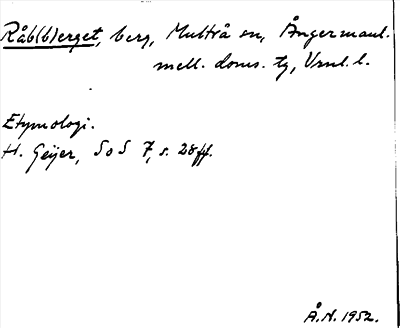 Råb(b)erget, berg, Multrå sn, Ångermanl.
mell. doms. tg, Vnul. l.
Etymologi.
H. Geijer, SoS 7, s. 28ff.
Å.N. 1952.